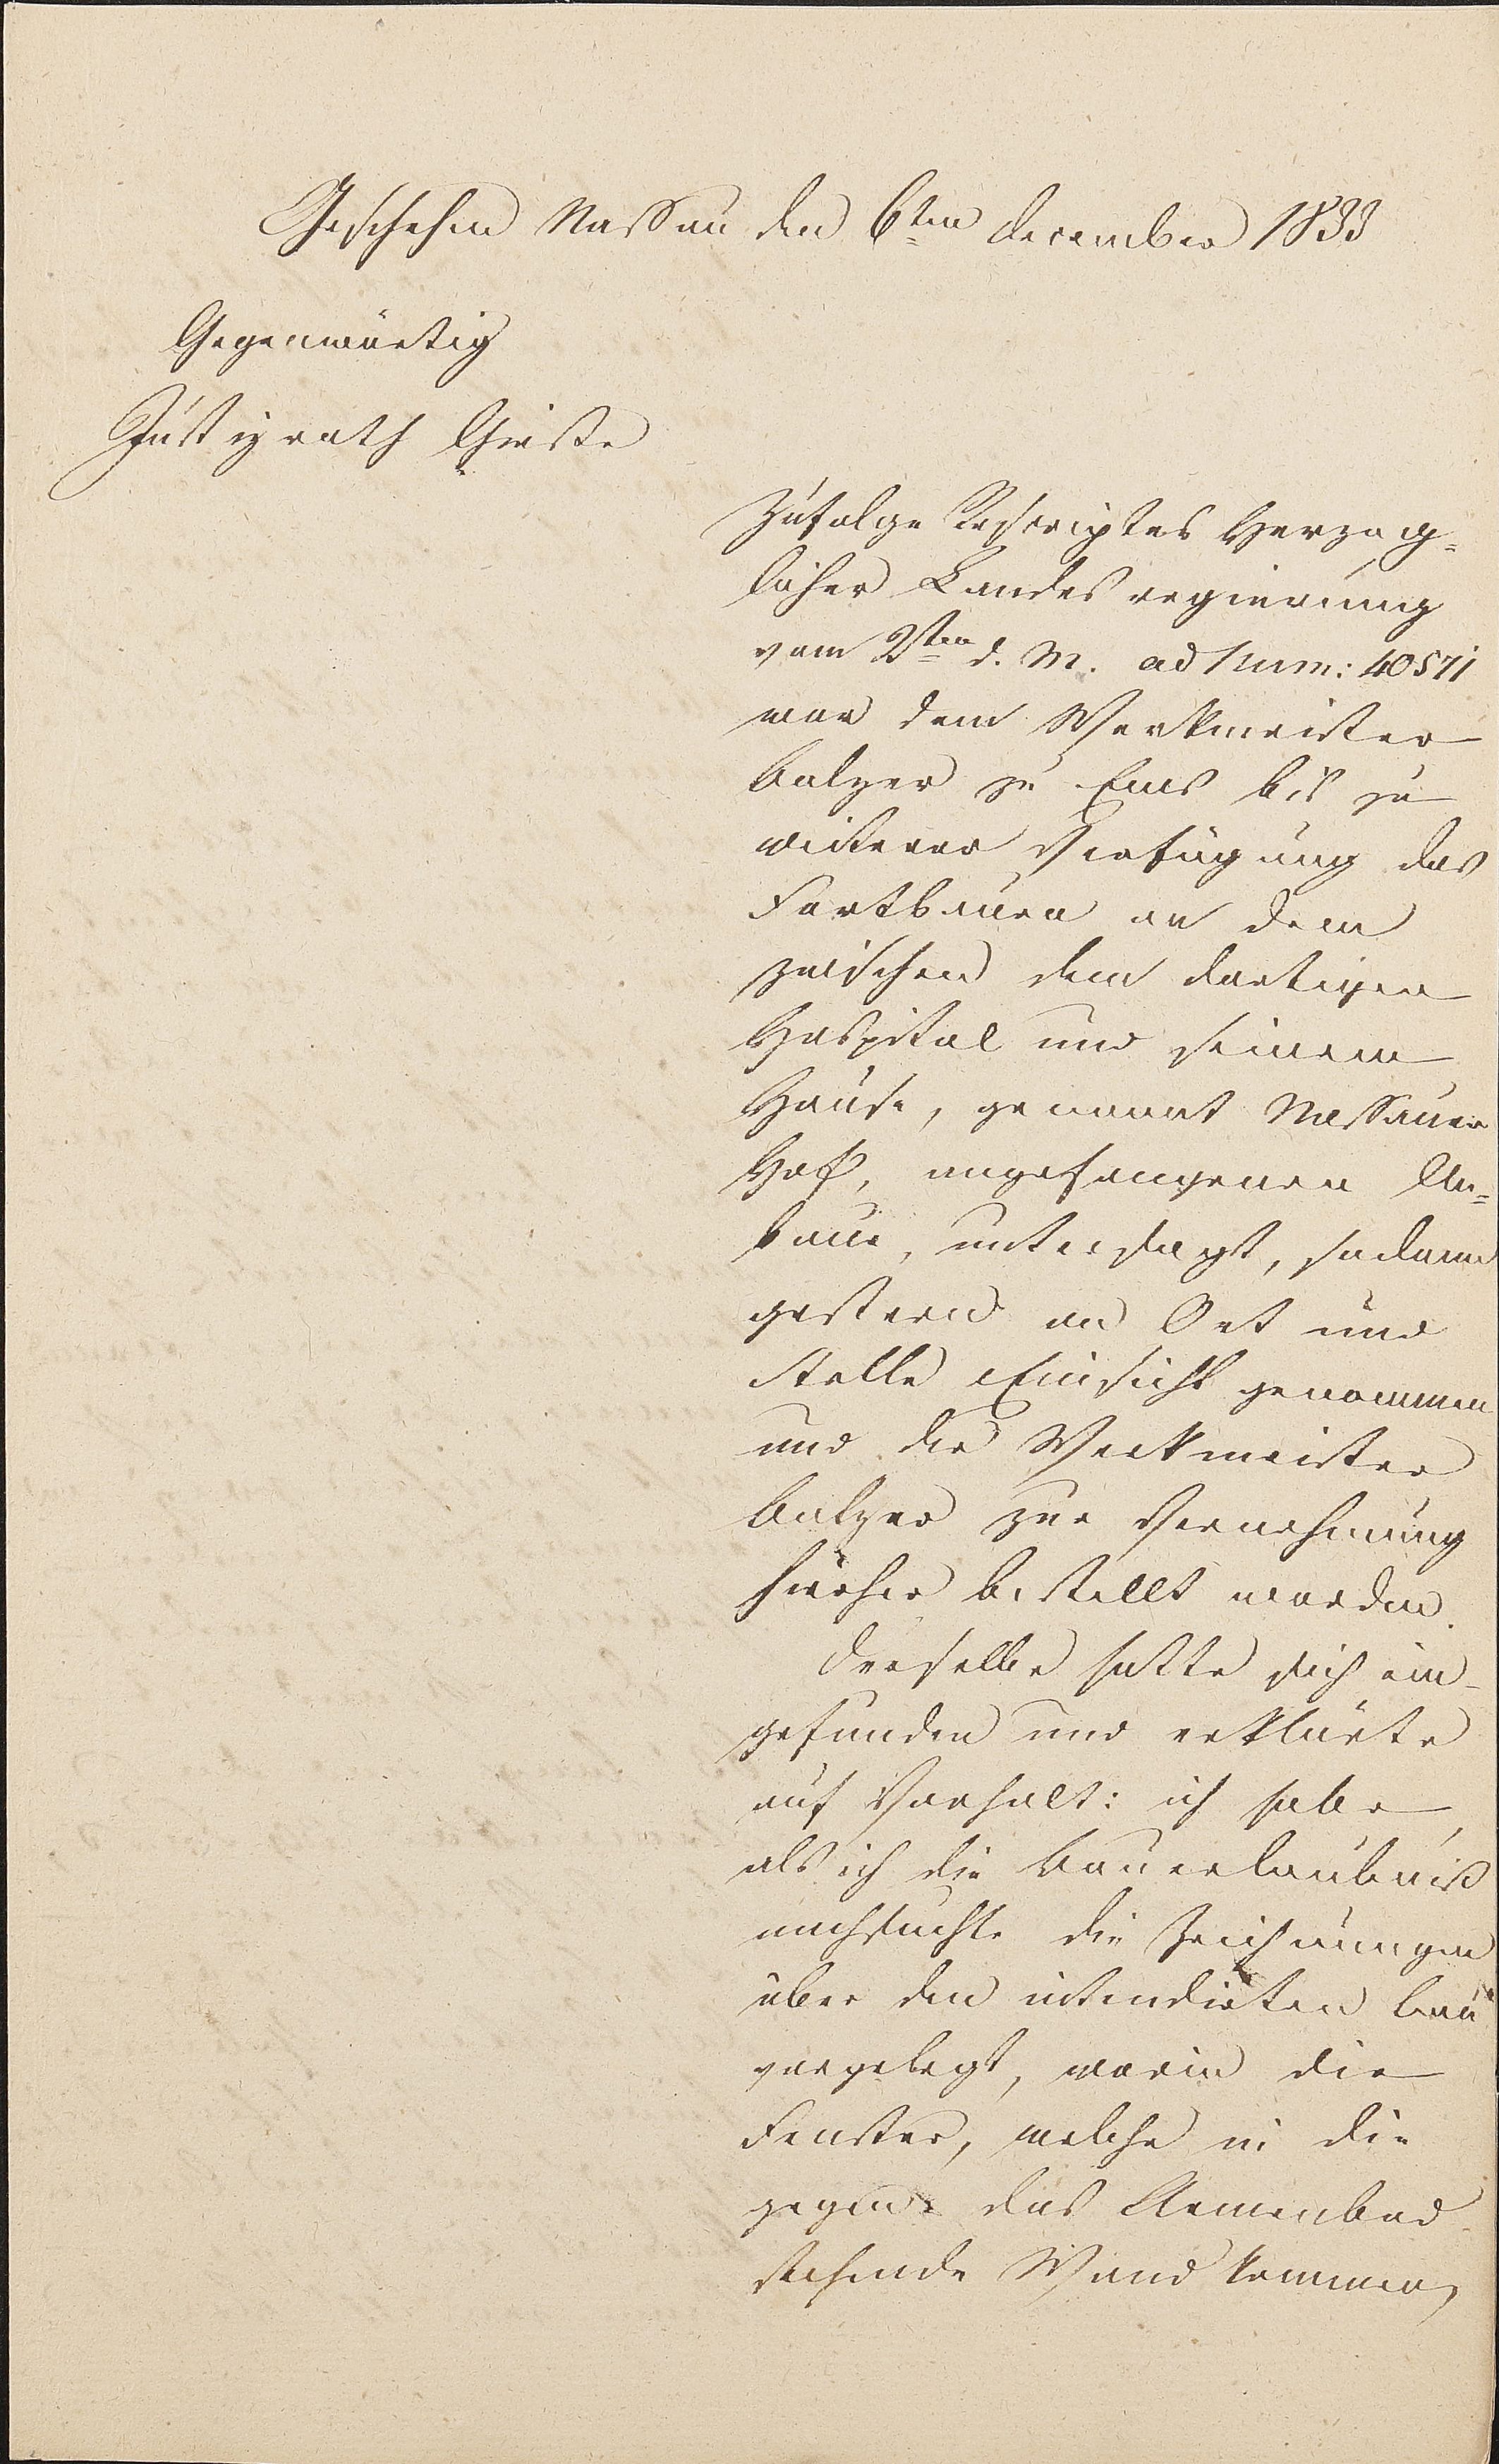 Geschehen Nassau den 6ten December 1833
Gegenwärtig
Justizrath Gieße
Zufolge Rescriptes Herzog=
licher Landesregierung
vom 2ten d. M. ad Num: 40571
war dem Werkmeister
Balzer zu Ems bis zu
weiterer Verfügung das
Fortbauen an dem
zwischen dem dortigen
Hospital und seinem
Hause, genannt Nassauer
Hof, angefangenen An=
baue, untersagt, sodann
gestern an Ort und
Stelle Einsicht genommen
und der Werkmeister
Balzer zur Vernehmung
hierher bestellt worden.
Derselbe hatte sich ein-
gefunden und erklärte
auf Vorhalt: ich habe,
als ich die Bauerlaubniß
nachsuchte die Zeichnungen
über den intendirten Bau
vorgelegt, worin die
Fenster, welche in die
gegen das Armenbad
stehende Wand kommen,